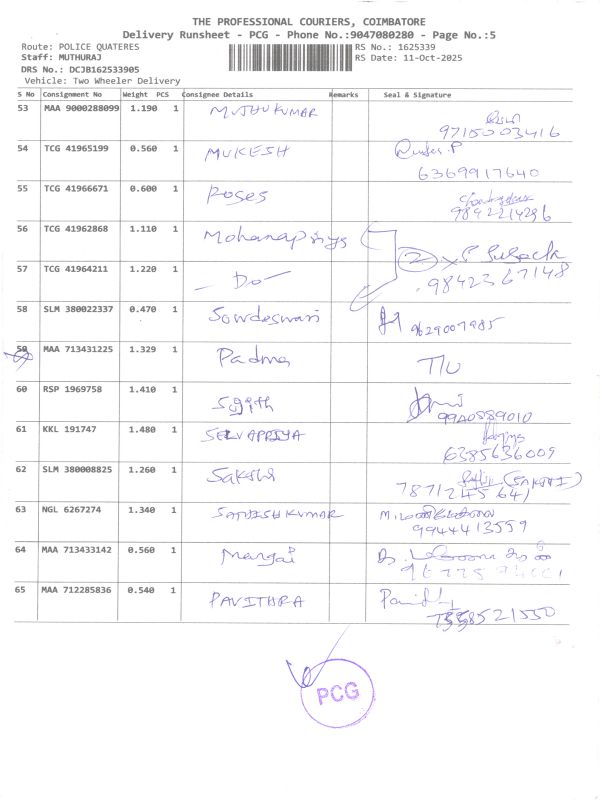 THE PROFESSIONAL COURIERS, COIMBATORE
Delivery Runsheet - PCG - Phone No.:9047080280 - Page No.:5
Route: POLICE QUATERES RS No.: 1625339
Staff: MUTHURAJ RS Date: 11-Oct-2025
DRS No.: DCJB162533905
Vehicle: Two Wheeler Delivery
S No Consignment No Weight PCS Consignee Details Remarks Seal & Signature
53 MAA 9000288099 1.190 1 MUTHUKUMAR
9715003416
54 TCG 41965199 0.560 1 MUKESH
6369917640
55 TCG 41966671 0.600 1 Roses
9842214296
56 TCG 41962868 1.110 1 Mohanapriya
2
57 TCG 41964211 1.220 1 - Do -
9842367148
58 SLM 380022337 0.470 1 Sowdeswari
9629007985
59 MAA 713431225 1.329 1 Padma T/U
60 RSP 1969758 1.410 1 Sujith
9940889010
61 KKL 191747 1.480 1 SELVAPRIYA
6385636009
62 SLM 380008825 1.260 1 Sakshi (SAKTHI)
7871245641
63 NGL 6267274 1.340 1 SATHESHKUMAR
9944413559
64 MAA 713433142 0.560 1 Mangai
65 MAA 712285836 0.540 1 PAVITHRA
8521550
PCG